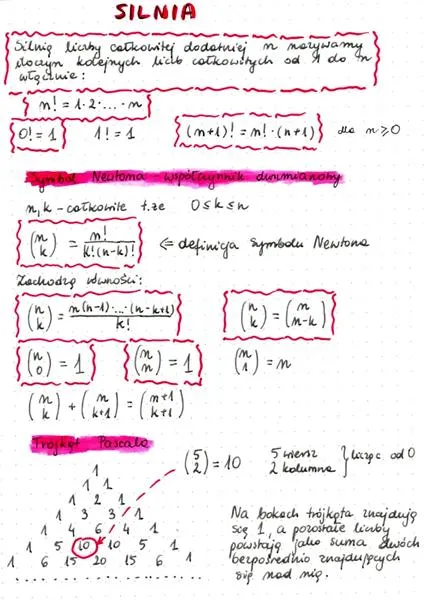 SILNIA
Silnią liczby całkowitej dodatniej n nazywamy
iloczyn kolejnych liczb całkowitych od 1 do n
włącznie:
n! = 1·2·...·n
0! = 1 1! = 1 (n+1)! = n!·(n+1) dla n ≥ 0
Symbol Newtona - współczynnik dwumianowy
n, k - całkowite t.że 0 ≤ k ≤ n
(n k) = n! / k!(n-k)! ⇐ definicja symbolu Newtona
Zachodzą równości:
(n k) = n(n-1)·...·(n-k+1) / k! (n k) = (n n-k)
(n 0) = 1 (n n) = 1 (n 1) = n
(n k) + (n k+1) = (n+1 k+1)
Trójkąt Pascala
(5 2) = 10 5 wiersz 2 kolumna } licząc od 0
1
1 1
1 2 1
1 3 3 1
1 4 6 4 1
1 5 10 10 5 1
1 6 15 20 15 6 1
Na bokach trójkąta znajdują
się 1, a pozostałe liczby
powstają jako suma dwóch
bezpośrednio znajdujących
się nad nią.